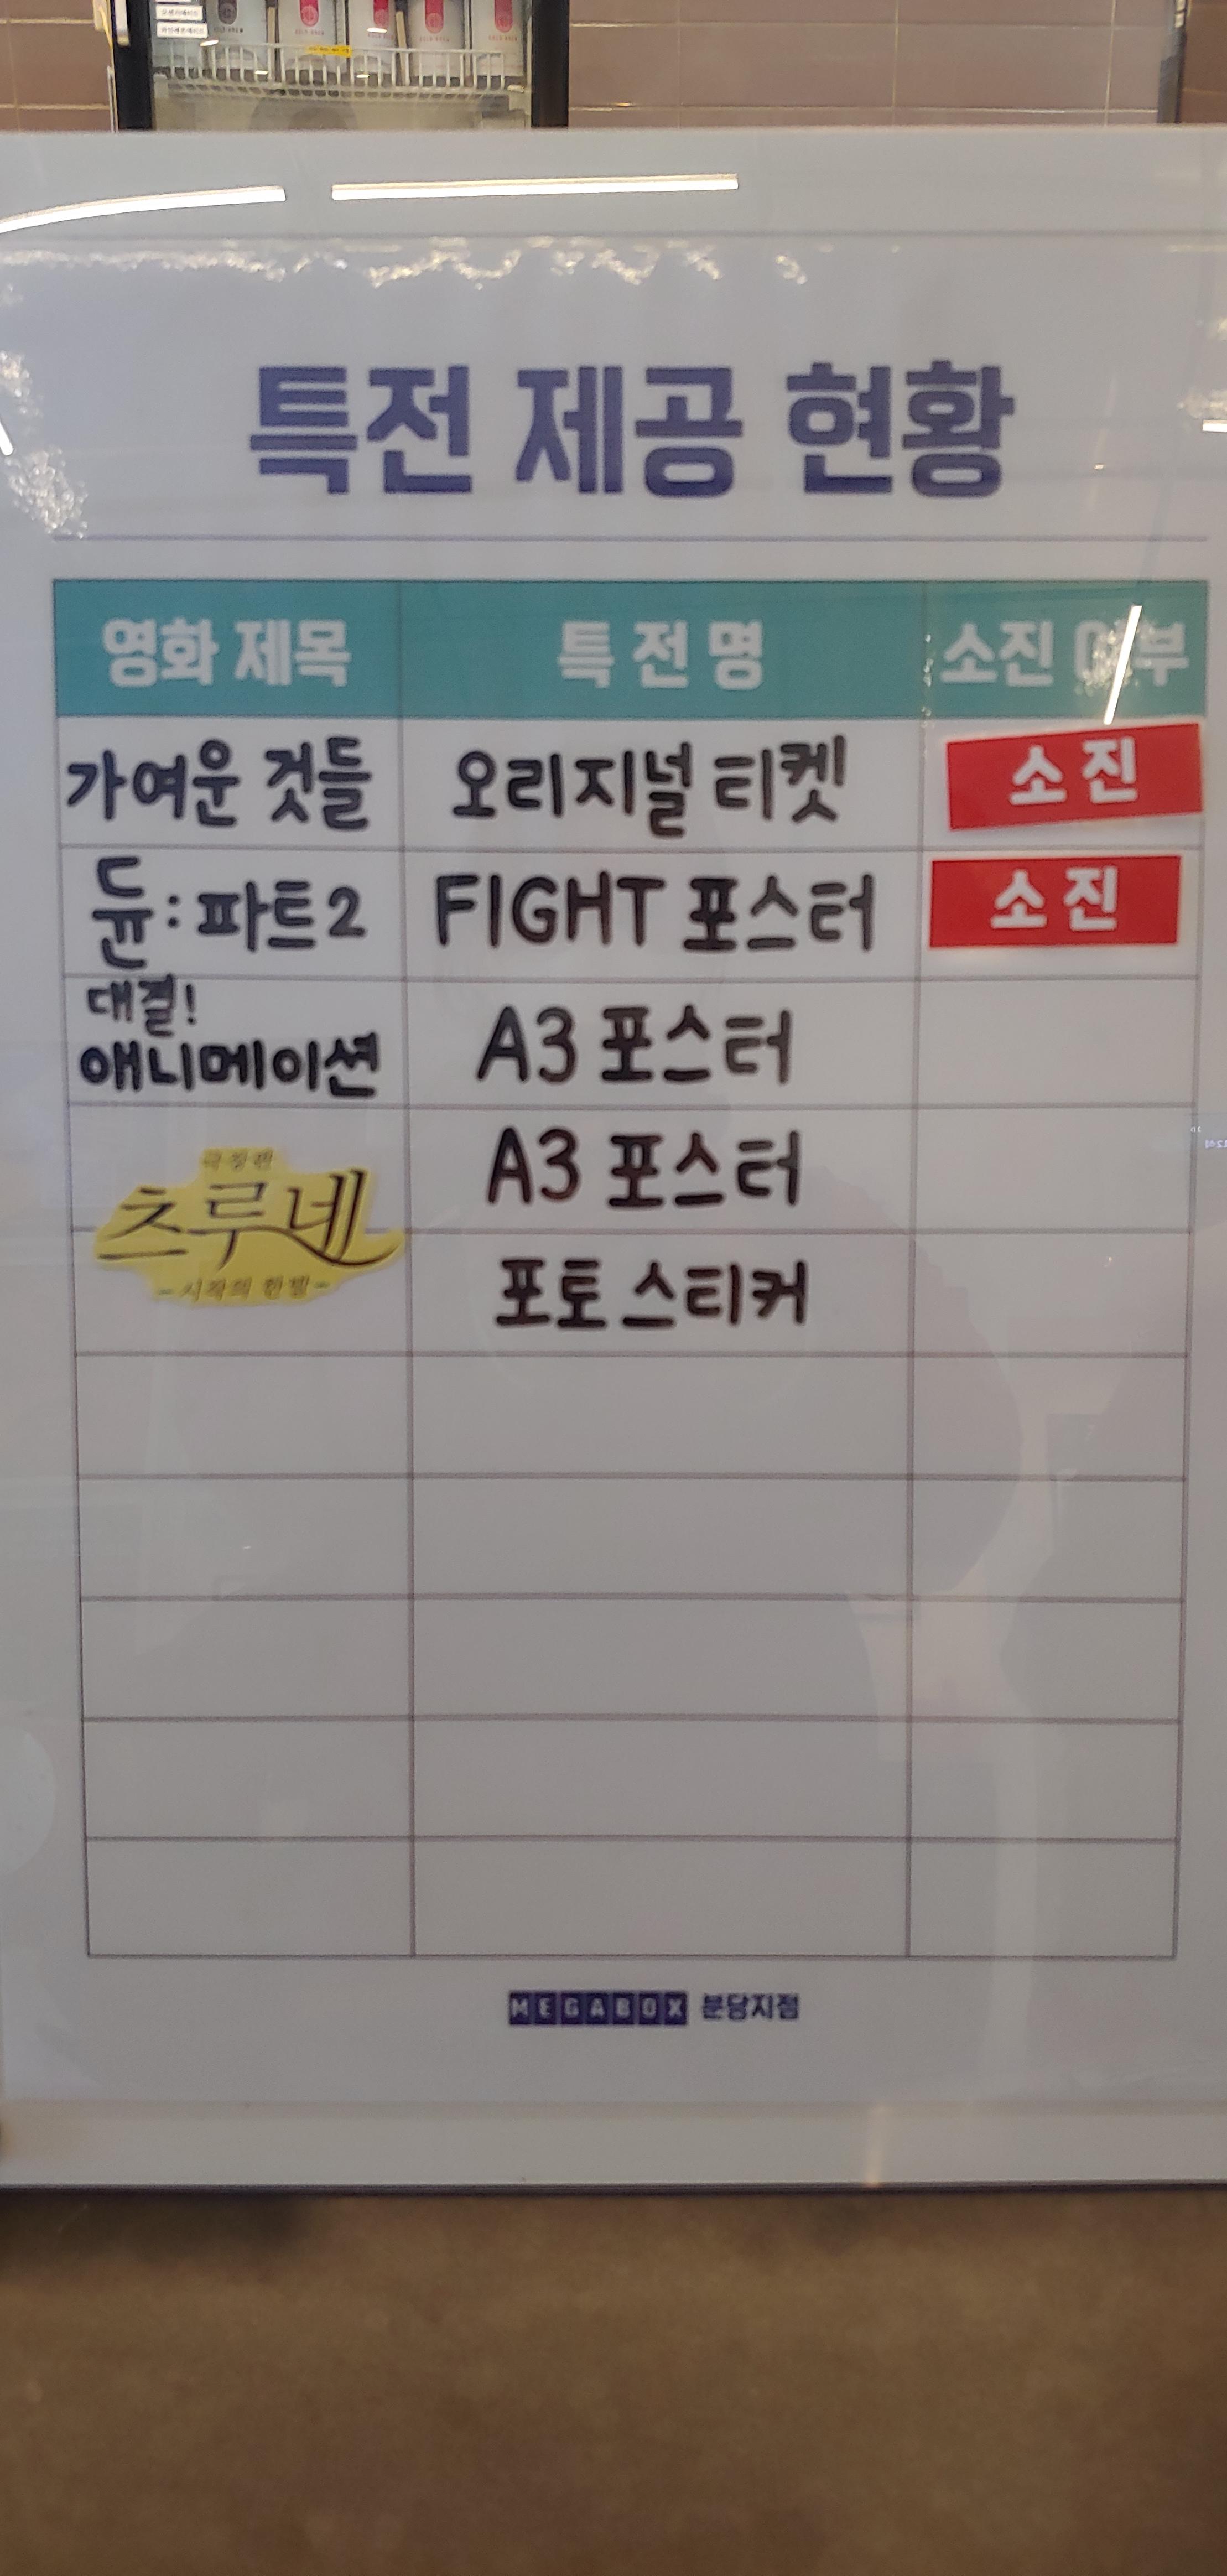 특전 제공 현황
영화 제목 특전명 소진 여부
가여운 것들 오리지널 티켓 소진
듄:파트2 FIGHT 포스터 소진
대결!
애니메이션 A3 포스터
A3 포스터
극장판
츠루네
-시작의 한 발-
포토 스티커
MEGABOX 분당지점